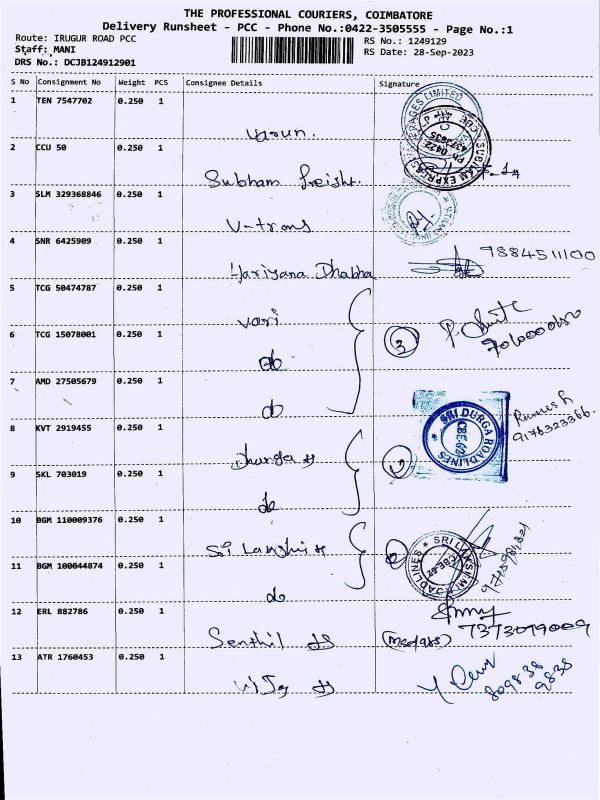 THE PROFESSIONAL COURIERS, COIMBATORE
Delivery Runsheet - PCC - Phone No.:0422-3505555 - Page No.:1
Route: IRUGUR ROAD PCC
RS No.: 1249129
Staff: MANI
RS Date: 28-Sep-2023
DRS No.: DCJB124912901
S No Consignment No Weight PCS Consignee Details Signature
1 TEN 7547702 0.250 1
Varun.
2 CCU 50 0.250 1
Subham freight.
3 SLM 329368846 0.250 1
V-trans
4 SNR 6425909 0.250 1
Hariyana Dhabha 9884511100
5 TCG 50474787 0.250 1
vari
6 TCG 15078001 0.250 1 3
do
7 AMD 27505679 0.250 1
do
SRI DURGA ROADLINES
CBE-62
Ramesh
9176323366.
8 KVT 2919455 0.250 1
Dhurga
9 SKL 703019 0.250 1
do
10 BGM 110009376 0.250 1
Sri Lakshmi
SRI LAKSHMI ROADLINES
CBE-62
11 BGM 100044874 0.250 1
do
12 ERL 882786 0.250 1
Senthil
7373099009
13 ATR 1760453 0.250 1
809838
9838